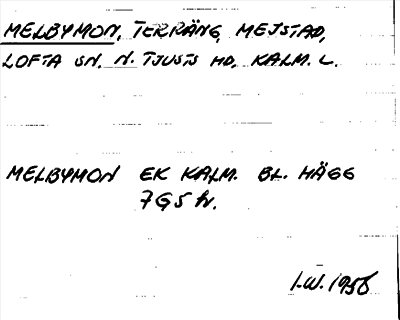 MELBYMON, TERRÄNG, MEJSTAD,
LOFTA SN. N. TJUSTS HD. KALM. L.
MELBYMON EK KALM. BL. HÄGG
7G5 h.
I.W. 1956